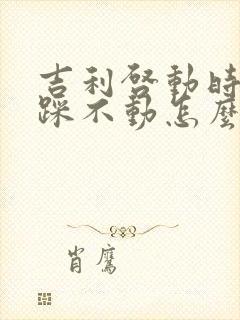 吉利啓動時
踩不動怎麼
肖鷹